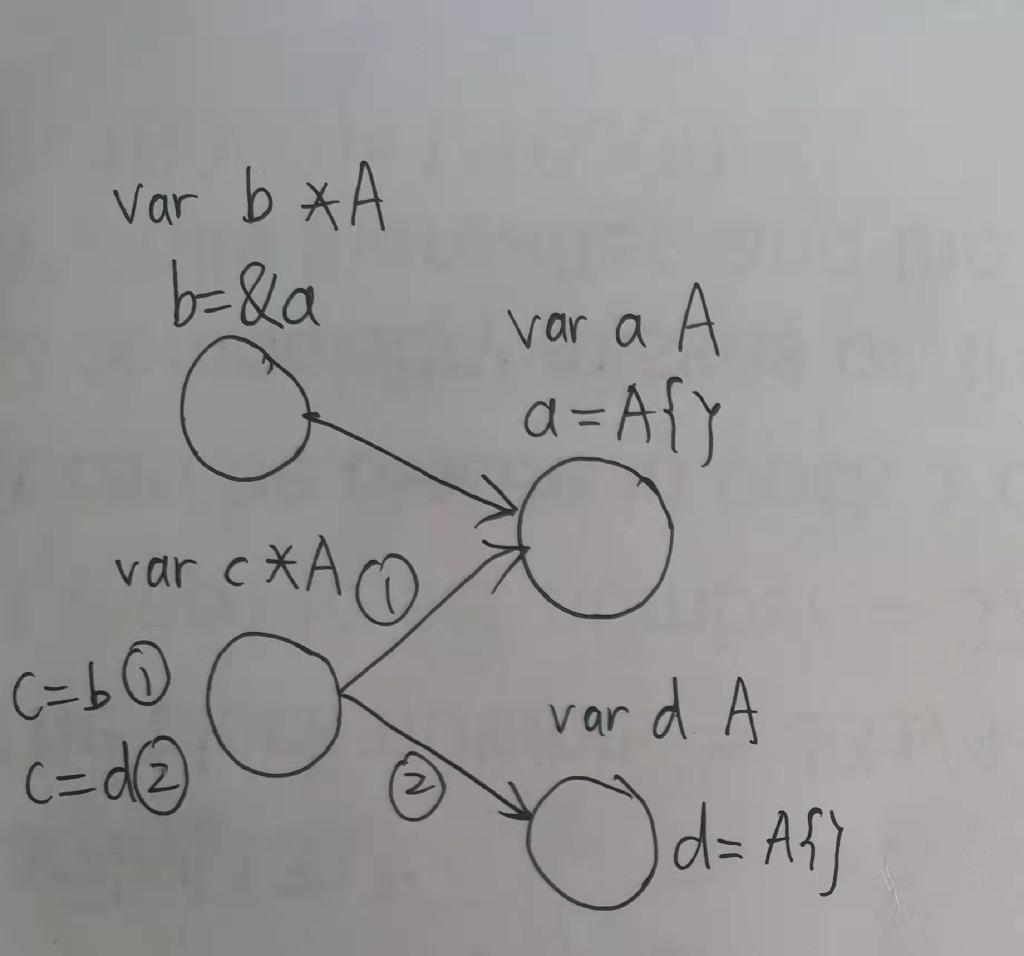 var b *A
b=&a
var a A
a=A{}
var c*A ①
c=b①
c=d②
②
var d A
d=A{}